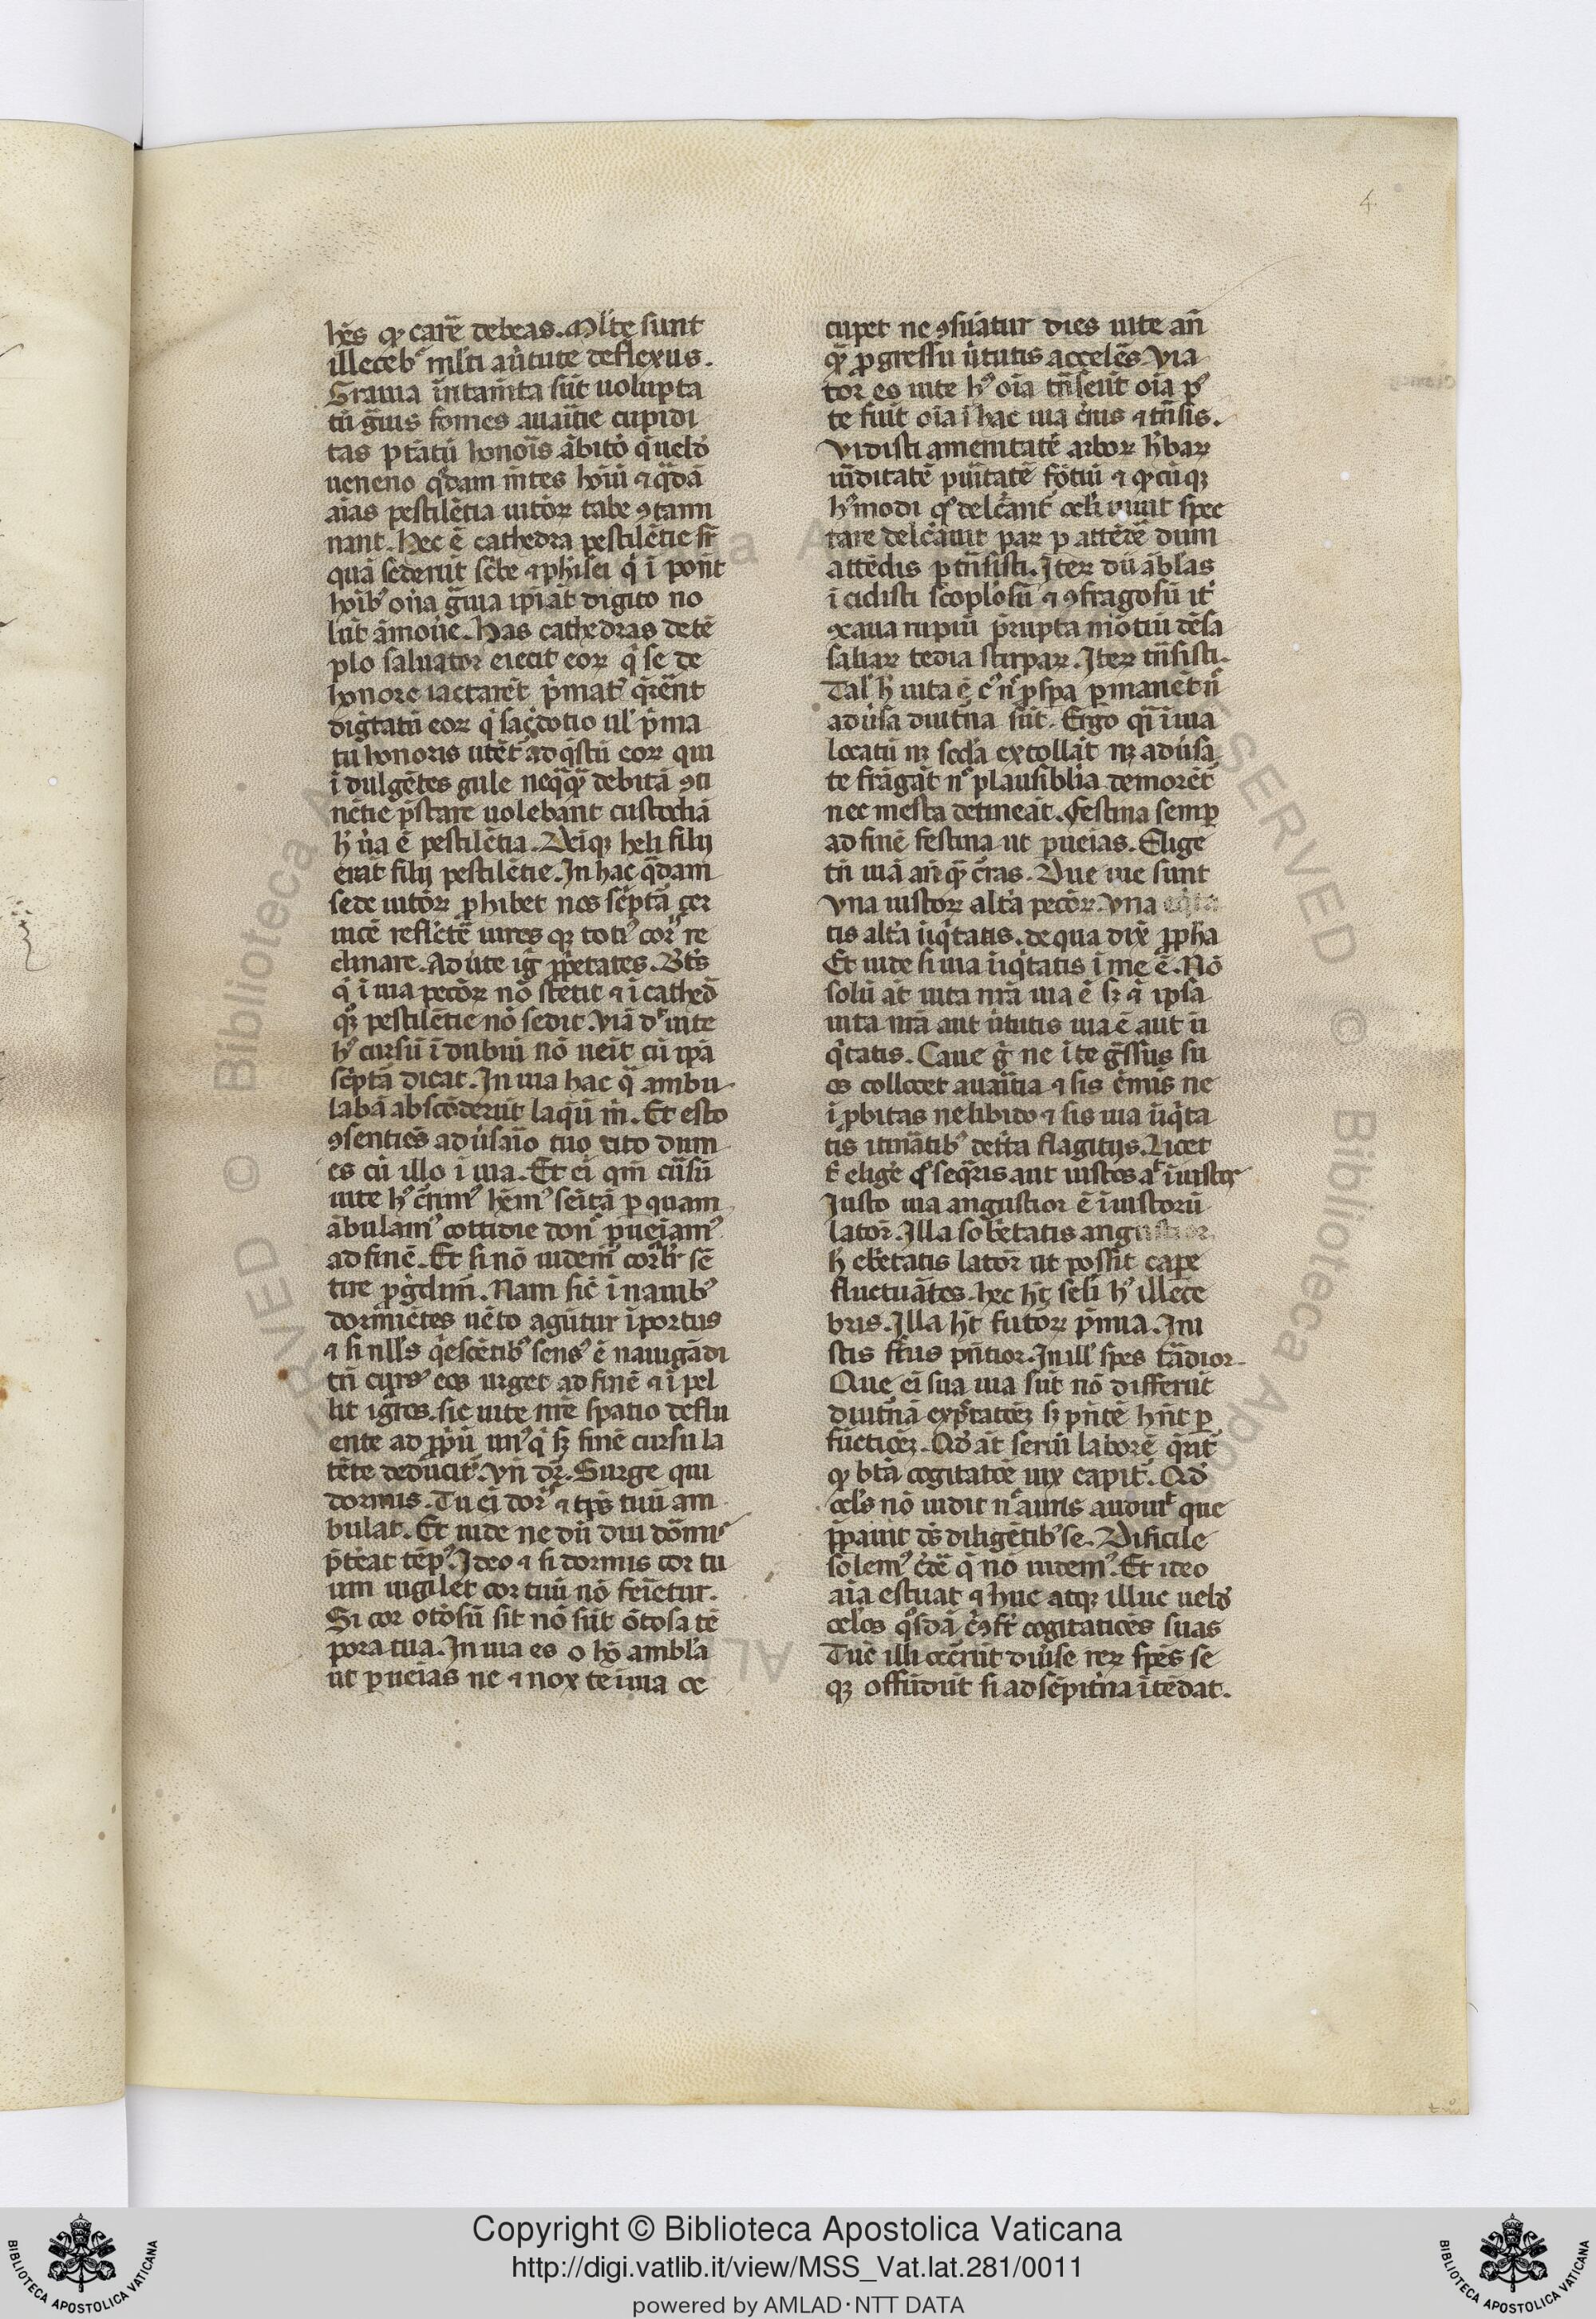 4
hēs qͥ carē debeas. Mlte sunt
illecebᵉ mlti auͥtute deflexus.
Grauia intamta sūt uolupta
tū gͣuius fomes auaritie cupidi
tas ptatū honoīs ābitō qͥ uelō
ueneno qͣdam mtes hoiū ⁊ qͣdā
aias pestilētia uitioꝝ tabe ꝯtami
nant. Hec ē cathedra pestilētie sr
quā sederūt scͥbe ⁊ phisei qͥ ī ponūt
hoībꝫ onͣa gͣuia ip̄i āt digito no
lūt āmouͤe. Has cathedras de tē
plo saluator eiecit eoꝝ qͥ se de
honore iactarēt pͥmatꝰ qͥrēnt
digtatū eoꝝ qͥ sacͤdotio ul' pͥma
tu honoris utēt' ad qͥstū eoꝝ qui
īdulgētes gule neqͣqͣ debitā ꝯti
nētie pͥstare uolebant custodiā
h' uͤa ē pestilētia. Deīqꝫ heli filij
erāt filij pestilētie. In hac qͣdam
sede uitioꝝ ꝓhibet nos scͥptͣa cer
uicē reflectē uires qꝫ totiꝰ corpͥs re
clinare. Aduͤte igͥ ꝓpͥetates. Bt̄s
qͥ ī uia pctoꝝ nō stetit ⁊ ī cathed̄
qͦꝫ pestilētie nō sedit. Viā dͦ uite
hꝰ cursū ī dubiū nō uēit cū ip̄a
scͥptͣa dicat. In uia hac qͣ ambu
labā abscōderūt laqͤū m. Et esto
ꝯsentiēs aduͤsaͥio tuo cito dum
es cū illo ī uia. Et ei qm̄ cūsū
uite hꝰ cͤnimꝰ hēmꝰ sēitā p quam
ābulamꝰ cottidie donͨ ꝑueiamꝰ
ad finē. Et si nō uidem̄ corꝑlr sē
tire ꝓgͤdim̄. Nam sic̄ ī nauibꝫ
dormiētes uēto agūtur ī portus
⁊ si nll's qͥescētibꝫ sensꝰ ē nauigādi
tn̄ cursꝰ eos urget ad finē ⁊ īpel
lit igͦros. sic uite nr̄e spatio deflu
ente ad ꝓpͥū unꝰqͥsqꝫ finē cursu la
tēte deducit'. Vn̄ dr̄. Surge qui
dormis. Tu ei dorͥs ⁊ tp̄s tuū am
bulat. Et uide ne dū diu dōmiˢ
pͥtͤeat tēpꝰ. Ideo ⁊ si dormis cor tu
um uigilet cor tuū nō feriͤetur.
Si cor otiosū sit nō sūt ōtiosa tē
pora tua. In uia es o hō ambl'a
ut ꝑueias ne ⁊ nox te ī uia oc
cupet ne ꝯsumātur dies uite an̄
qͣ ꝓgressū uͥtutis accelēs. Via
tor es uite hꝰ oīa tn̄seūt oīa pꝰ
te fuīt oīa ī hac uia cͤnis ⁊ tn̄sis.
Vidisti amenitatē arboꝝ hͤbaꝝ
uīditatē puritatē fōtiū ⁊ qͥcūqꝫ
hꝰmodi qͦ delectant oculi iuuit spec
tare delectauit par p attēdē dum
attēdis ꝑtn̄sisti. Iteꝝ dū ābl'as
īcidisti scoplosū ⁊ ꝯfragosū it'
ꝯcaua rupiū pͤrupta mōtiū dēsa
saltuaꝝ tedia stirpaꝝ. Iteꝝ tn̄sisti.
Tal' h' uita ē cꝰ nͨ ꝓspa ꝑmanēt nͨ
aduͤsa diutͥna sūt. Ergo qͥ ī uia
locatū nꝫ scd̄a extollāt nꝫ aduͤsa
te frāgāt nͨ plausiblia demorēt
nec mesta detineāt. Festina semꝑ
ad finē festina ut ꝑueias. Elige
tn̄ uiā an̄ qͣ cͤras. Due uie sunt
Vna iustoꝝ altͣa pctoꝝ. Vna eqͥta
tis altͣa iniqͥtatis. de qua dix̄ ꝓph̄a
Et uide si uia iniqͥtatis ī me ē. Nō
solū āt uita nr̄a uia ē sꝫ ⁊ ip̄sa
uita nr̄a aut uͥtutis uia ē aut in
qͥtatis. Caue gͦ ne ī te gͤssus su
os collocet auaͥtia ⁊ sis cͤmīs ne
īꝓbitas ne libido ⁊ sis uia iniqͥta
tis itinātibꝫ detͥta flagitijs. Licet
tͥ eligͤe qͦs seqͣris aut iustos aͭ īiustos
Iusto uia angustior ē īiustorū
latior. Illa sobͥetatis angustior
h' ebͥetatis latior ut possit capͤe
fluctuātes. hec hꝫ seli hꝰ illece
bris. Illa hꝫ futuroꝝ pͤmia. Iniu
stis frͥuus pn̄tior. In ill' spes tādior.
Que ei sua uia sūt nō differūt
diutͥnā expͨtatiōeꝫ sꝫ pn̄tē hn̄t ꝑ
fūctiōeꝫ. Qd' āt seruī laborē qͥrit
qͥ btā cogitatōe uix capit. Qd'
ocl's nō uidit nͨ auris audiuͭ que
ꝓꝑauit d̄s diligētibꝫ se. Dificile
solemꝰ cͤdͤe qͥ nō uidemꝰ. Et ideo
aīa estuat ⁊ huc atqꝫ illuc uelō
ocl'os qͦsdā cͥcūfͤt cogitatiōes suas
Tūc illi occͥrūt diuͤse reꝝ spēs se
qꝫ offūdūt si ad sēpitͥna ītēdat.
Copyright © Biblioteca Apostolica Vaticana
http://digi.vatlib.it/view/MSS_Vat.lat.281/0011
powered by AMLAD·NTT DATA
BIBLIOTECA APOSTOLICA VATICANA
BIBLIOTECA APOSTOLICA VATICANA